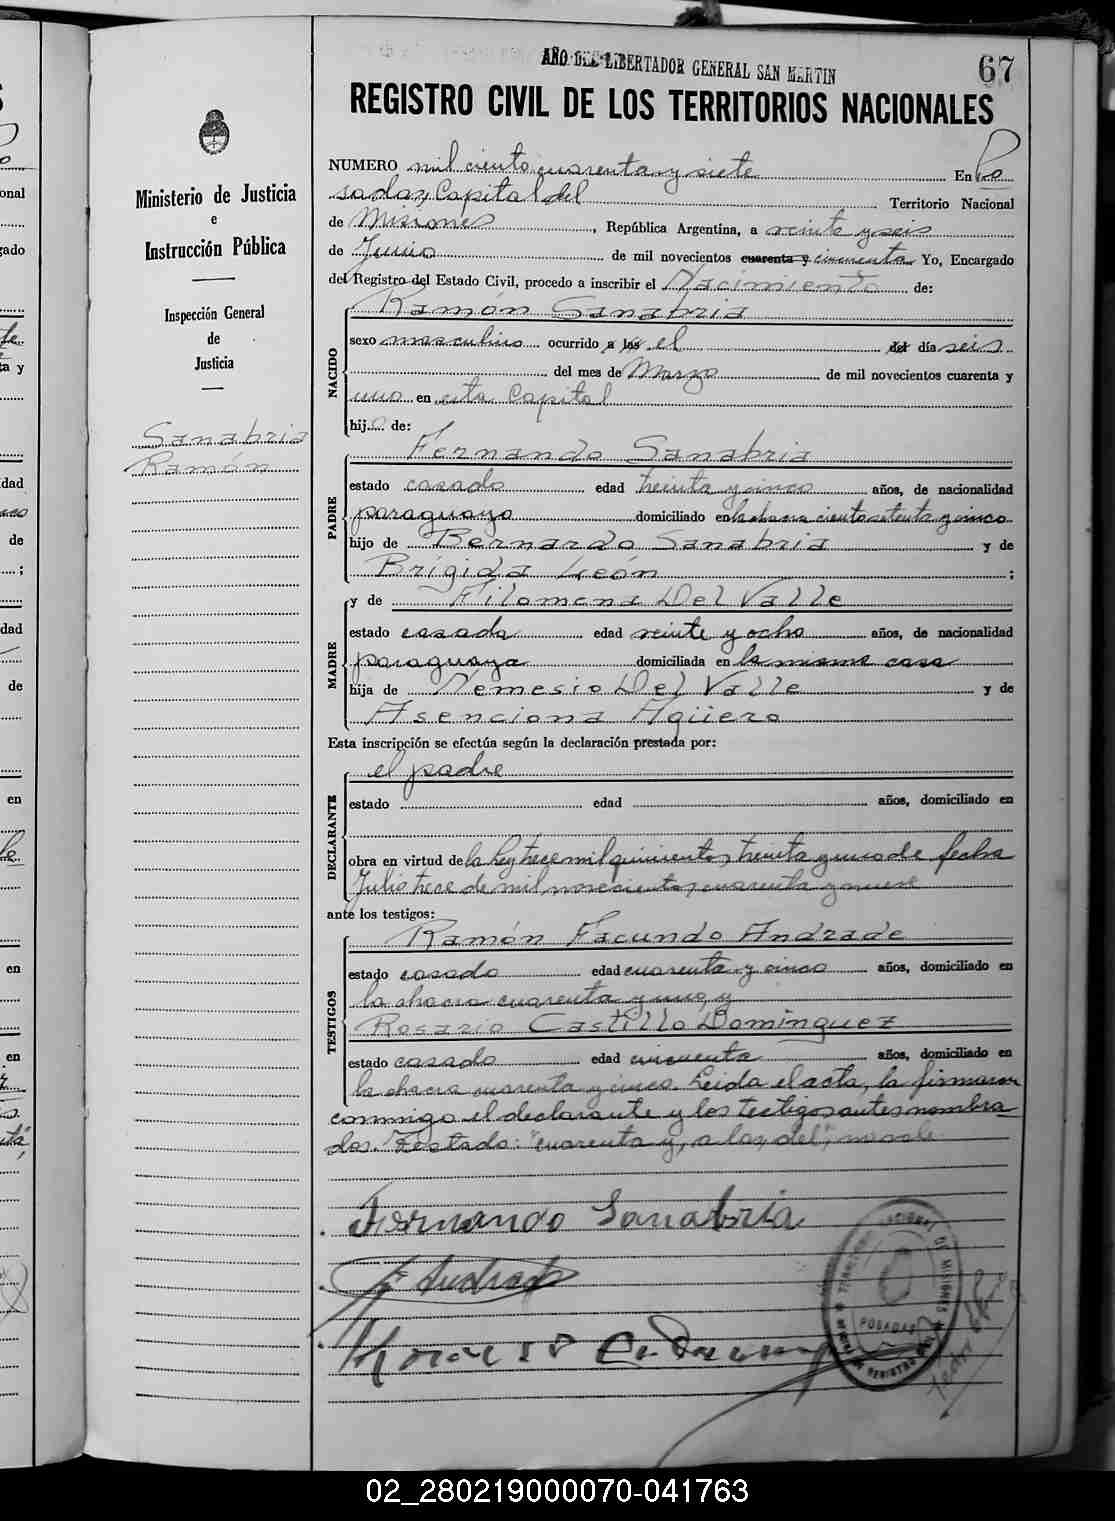 AÑO DEL LIBERTADOR GENERAL SAN MARTIN
67
REGISTRO CIVIL DE LOS TERRITORIOS NACIONALES
Ministerio de Justicia
e
Instrucción Pública
Inspección General
de
Justicia
Sanabria
Ramón
NUMERO mil ciento cuarenta y siete En Po
sadas, Capital del Territorio Nacional
de Misiones, República Argentina, a veinte y seis
de Junio de mil novecientos cuarenta y cincuenta Yo, Encargado
del Registro del Estado Civil, procedo a inscribir el Nacimiento de:
NACIDO
Ramón Sanabria
sexo masculino ocurrido a las el del día seis
del mes de Marzo de mil novecientos cuarenta y
uno en esta Capital
hijo de:
PADRE
Fernando Sanabria
estado casado edad treinta y cinco años, de nacionalidad
paraguayo domiciliado en la chacra ciento setenta y cinco
hijo de Bernardo Sanabria y de
Brígida León;
MADRE
y de Filomena Del Valle
estado casada edad veinte y ocho años, de nacionalidad
paraguaya domiciliada en la misma casa
hija de Nemesio Del Valle y de
Asenciona Agüero
Esta inscripción se efectúa según la declaración prestada por:
DECLARANTE
el padre
estado edad años, domiciliado en
obra en virtud de la Ley trece mil quinientos treinta y uno de fecha
Julio trece de mil novecientos cuarenta y nueve
ante los testigos:
TESTIGOS
Ramón Facundo Andrade
estado casado edad cuarenta y cinco años, domiciliado en
la chacra cuarenta y uno, y
Rosario Castillo Domínguez
estado casado edad cincuenta años, domiciliado en
la chacra cuarenta y cinco. Leida el acta, la firmaron
conmigo el declarante y los testigos antes nombra-
dos. Testado: "cuarenta y, a las, del", no vale
Fernando Sanabria
Andrade
POSADAS
02_280219000070-041763